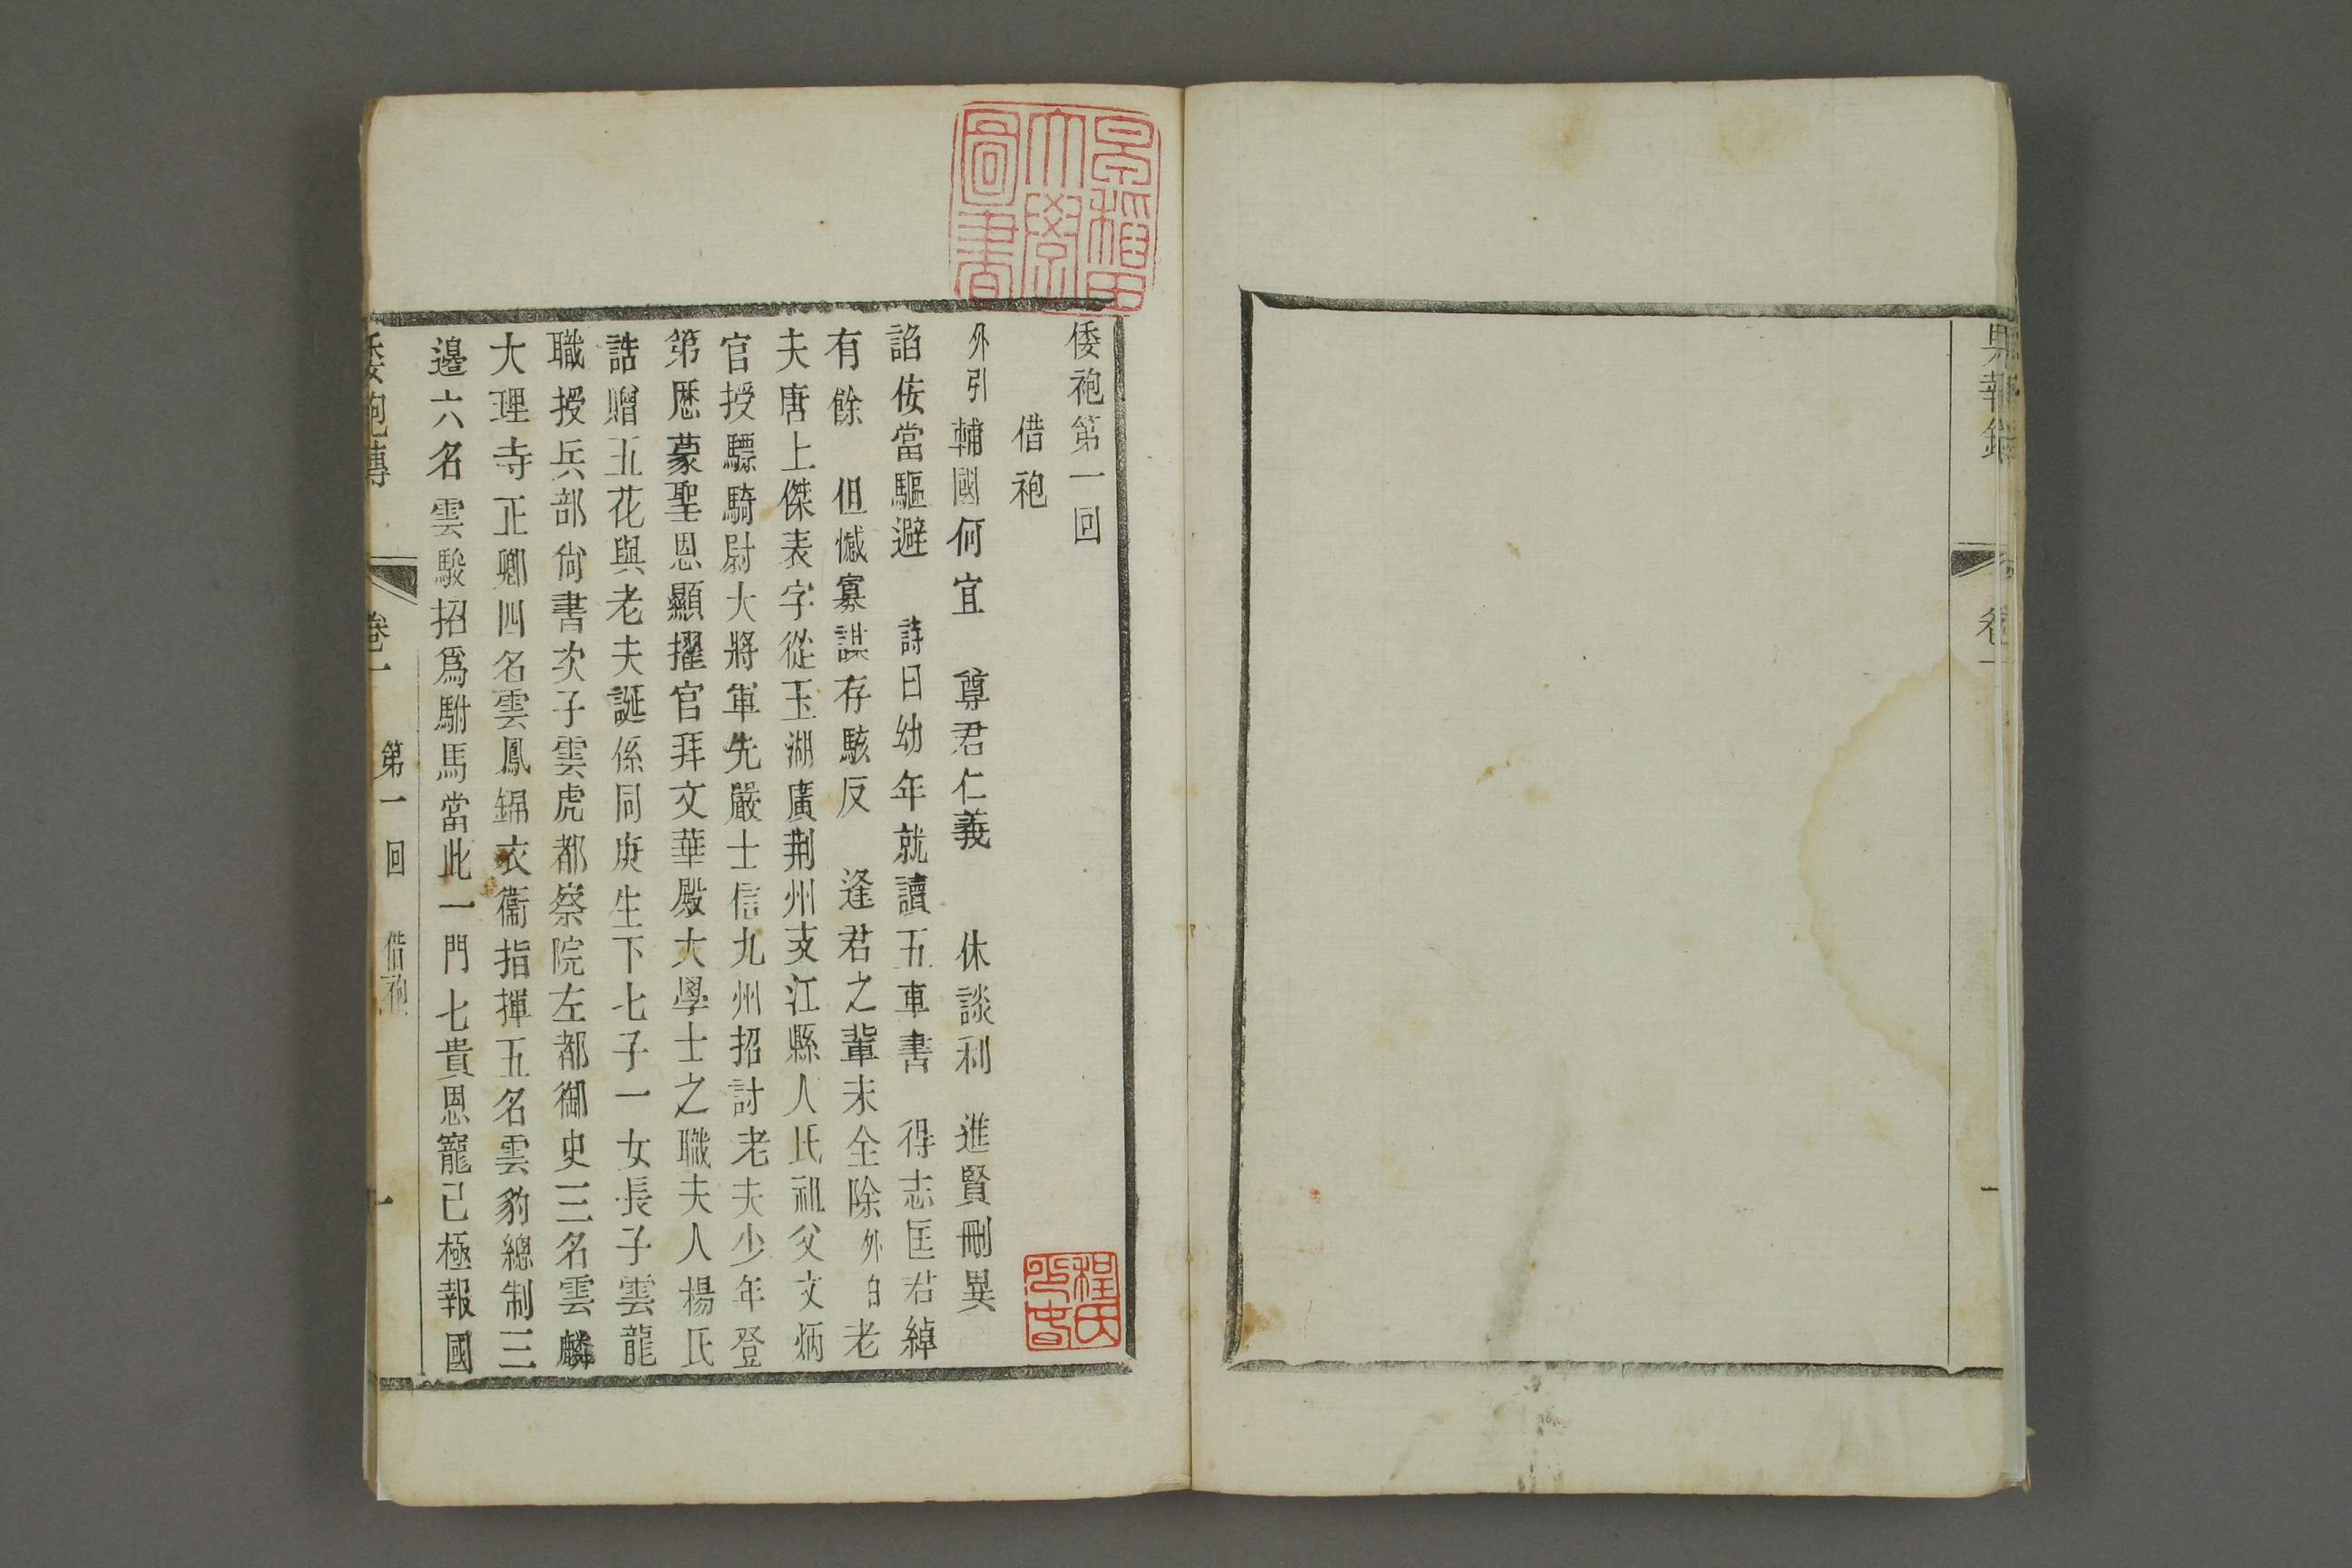 果報錄
卷一
一
早稻田
大學
圖書
倭袍第一回
借袍
外引輔國何宜 尊君仁義 休談利 進賢刪異
諂侫當驅避 詩曰幼年就讀五車書 得志匡君綽
有餘 但憾寡謀存駭反 逢君之輩未全除外白老
夫唐上傑表字從玉湖廣荆州支江縣人氏祖父文炳
官授驃騎尉大將軍先嚴士信九州招討老夫少年登
第歷蒙聖恩顯擢官拜文華殿大學士之職夫人楊氏
誥贈五花與老夫誕係同庚生下七子一女長子雲龍
職授兵部尙書次子雲虎都察院左都御史三名雲麟
大理寺正卿四名雲鳳錦衣衞指揮五名雲豹總制三
邊六名雲駿招爲駙馬當此一門七貴恩寵已極報國
倭袍傳 卷一 第一回 借袍 一
程氏